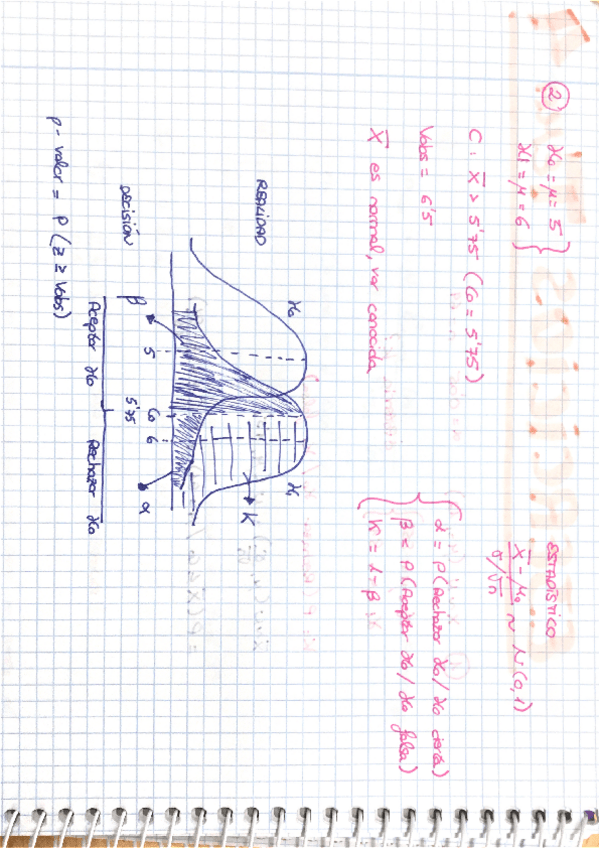 ② H₀ = μ = 5
H1 = μ = 6
ESTADÍSTICO
X̄ - μ₀
σ/√n
~ N(0,1)
C : X̄ > 5'75 (C₀ = 5'75)
Vobs = 6'5
X̄ es normal, var conocida
α = P(Rechazar H₀ / H₀ cierta)
β = P(Aceptar H₀ / H₀ falsa)
K = 1 - β
REALIDAD
H₀
H₁
K
DECISIÓN
β
5
C₀
6
α
5'75
Aceptar H₀
Rechazar H₀
p-valor = P(Z ≥ Vobs)